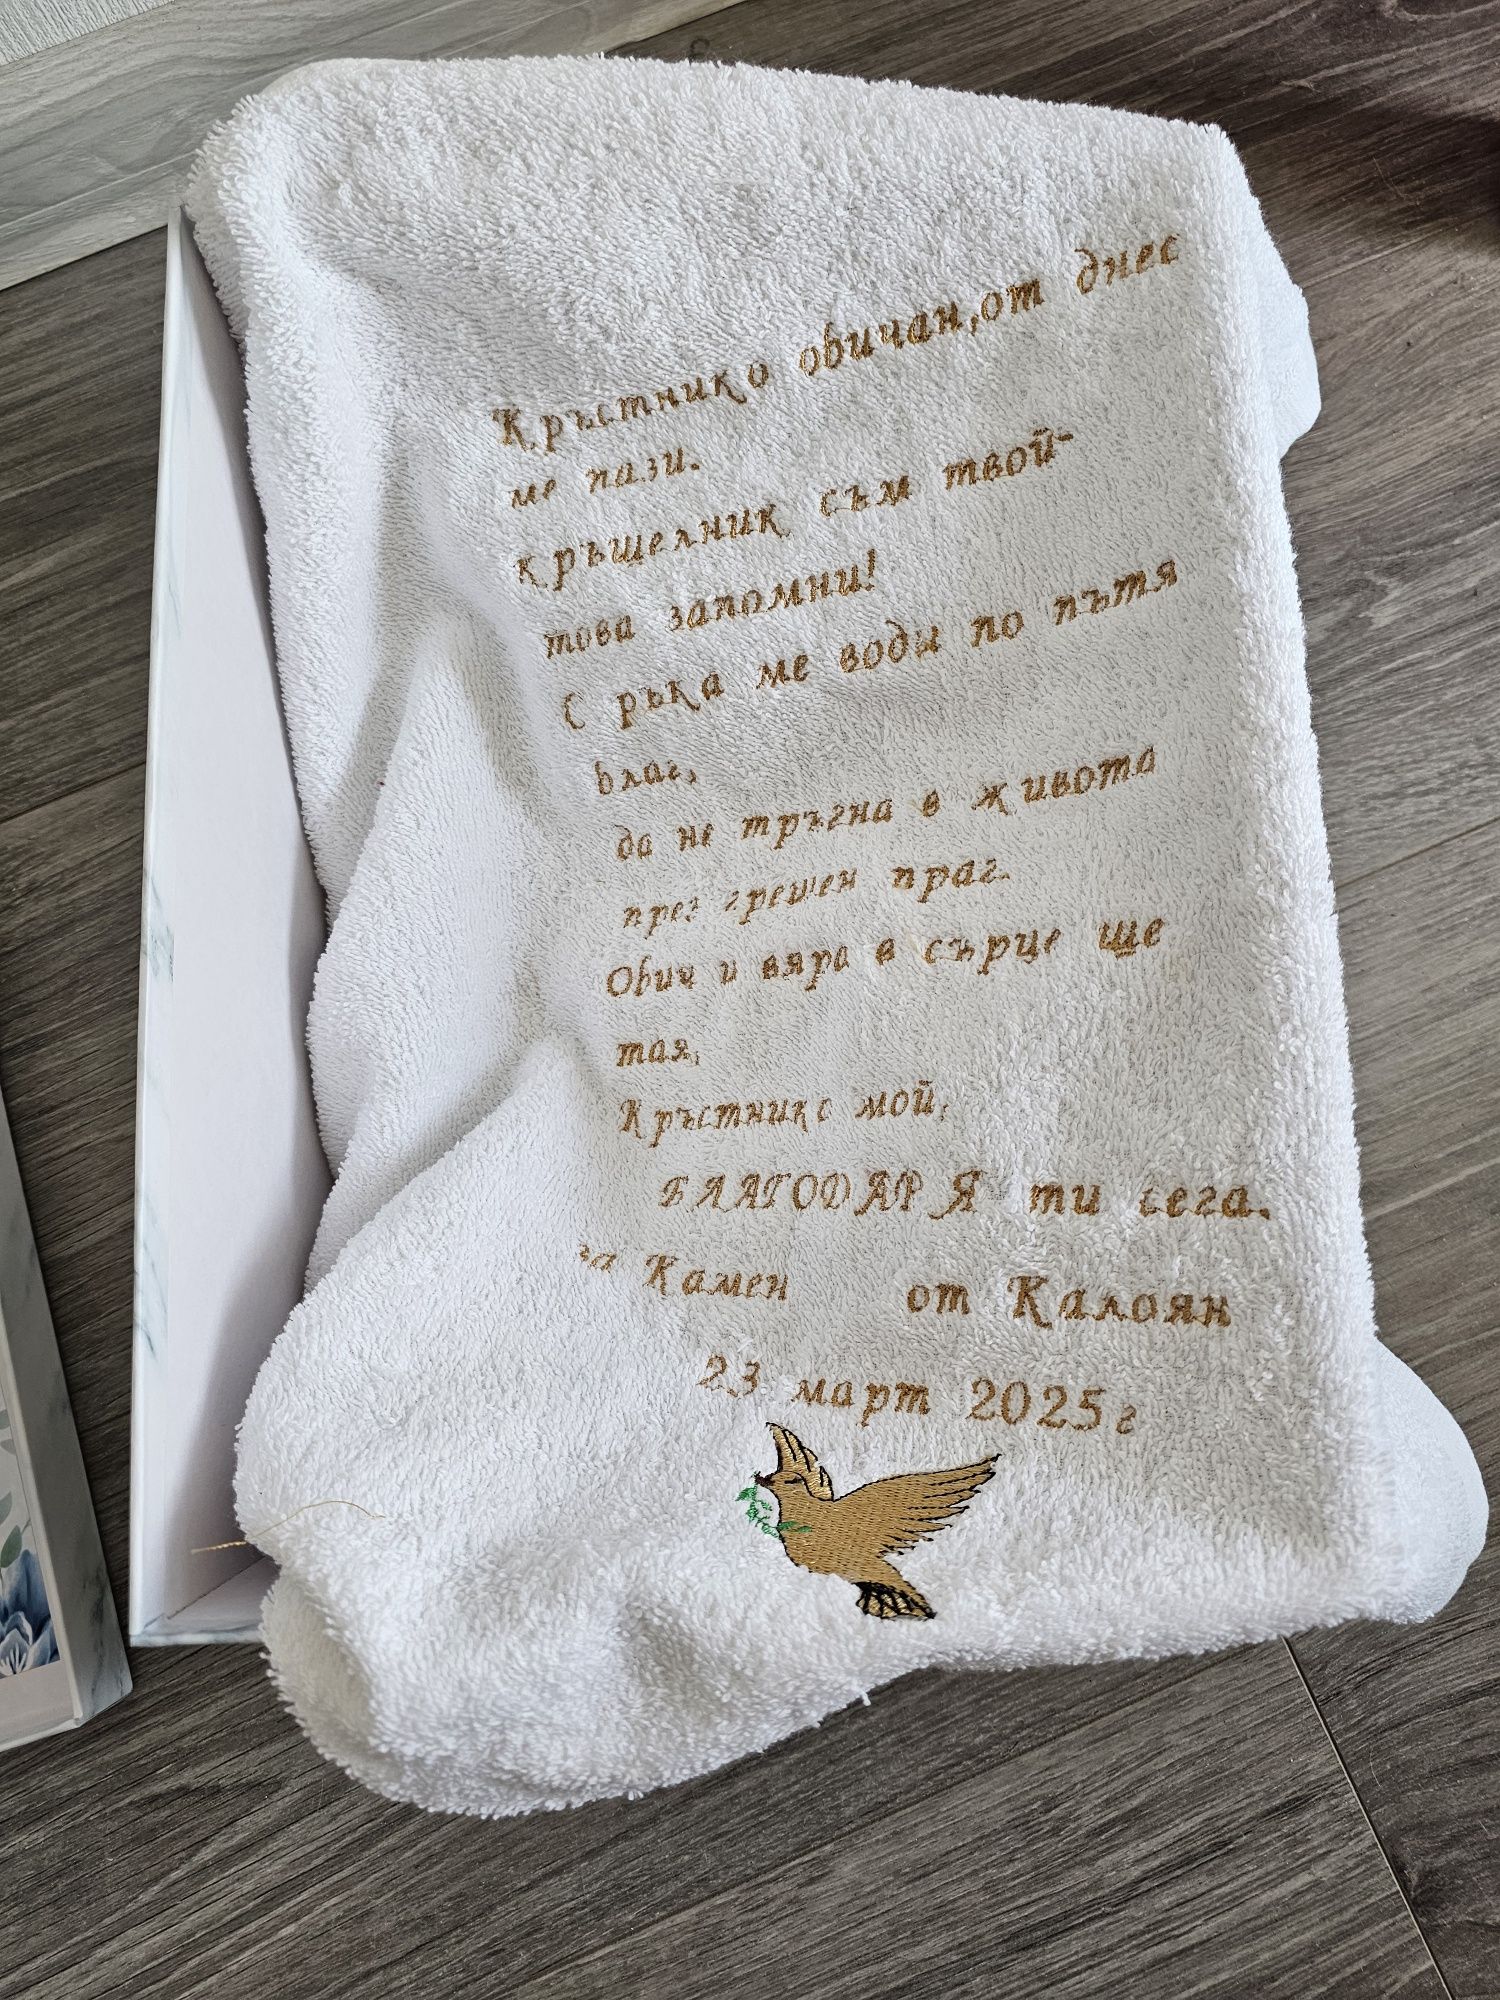 Кръстнико обичан,от днес
ме пази.
кръщелник съм твой-
това запомни!
С ръка ме води по пътя
благ,
да не тръгна в живота
през грешен праг.
Обич и вяра в сърце ще
тая,
Кръстнико мой,
БЛАГОДАРЯ ти сега.
за Камен от Калоян
23 март 2025г